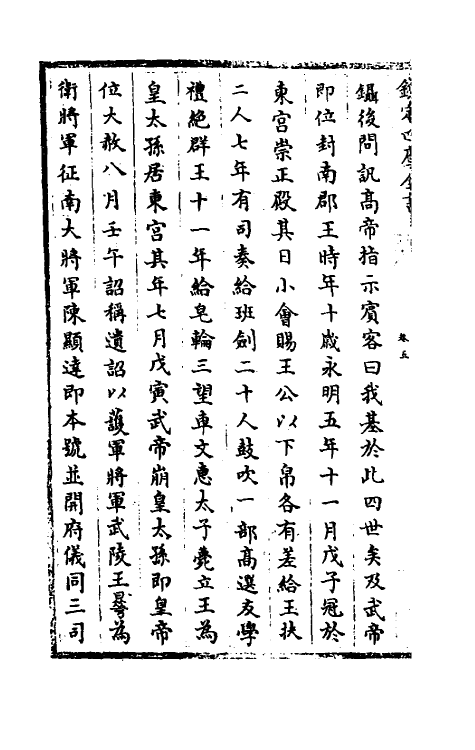 欽定四庫全書
卷五
鑷後問訊高帝指示賓客曰我基於此四世矣及武帝
即位封南郡王時年十歲永明五年十一月戊子冠於
東宮崇正殿其日小會賜王公以下帛各有差給王扶
二人七年有司奏給班劍二十人鼓吹一部高選友學
禮絕群王十一年給皂輪三望車文惠太子薨立王為
皇太孫居東宮其年七月戊寅武帝崩皇太孫即皇帝
位大赦八月壬午詔稱遺詔以護軍將軍武陵王曅為
衛將軍征南大將軍陳顯達即本號並開府儀同三司